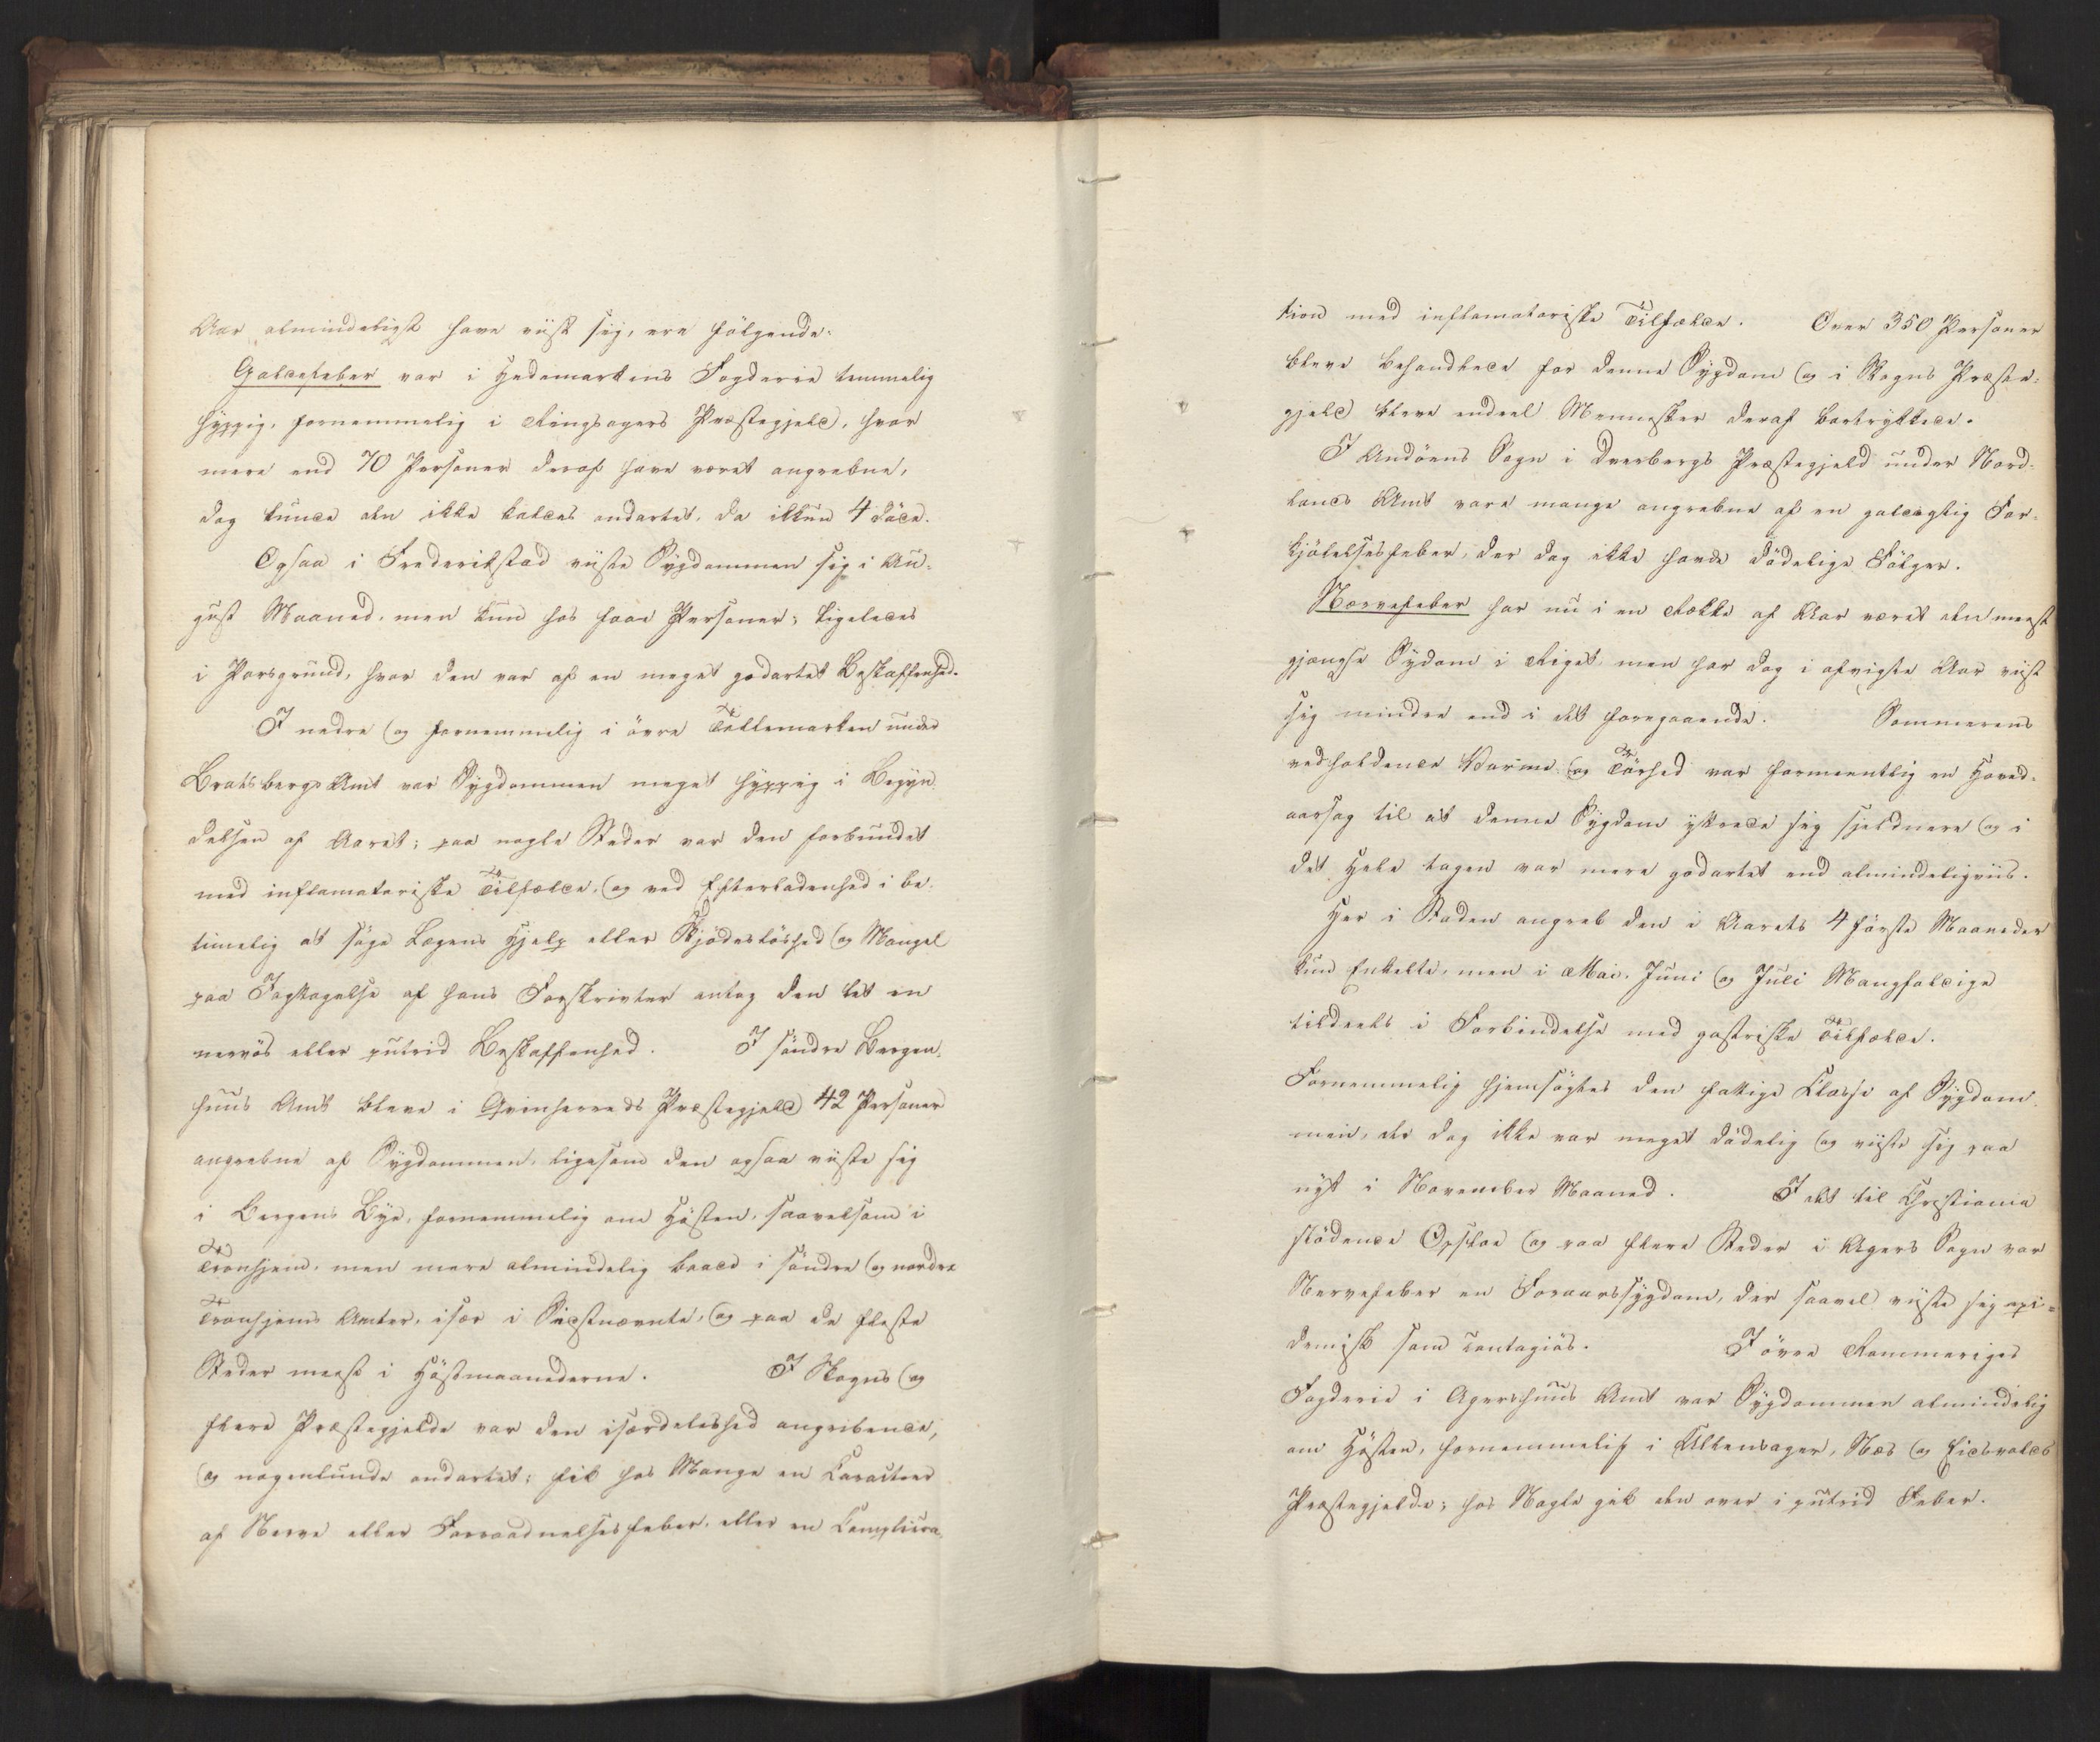 Aar almindeligst have viist sig, ere følgende:
Galdefeber var i Hedemarkens Fogderie temmelig
hyppig, fornemmelig i Ringsagers Præstegjeld, hvor
mere end 70 Personer deraf have været angrebne,
dog kunde den ikke kaldes ondartet, da ikkun 4 döde.
Ogsaa i Frederikstad viiste Sygdommen sig i Au-
gust Maaned, men kun hos faae Personer; ligeledes
i Porsgrund, hvor den var af en meget godartet Beskaffenhed.
I nedre og fornemmelig i övre Tellemarken under
Bratsbergs Amt var Sygdommen meget hyppig i Begyn-
delsen af Aaret; paa nogle Steder var den forbundet
med inflamatoriske Tilfælde, og ved Efterladenhed i be-
timelig at söge Lægens Hjelp eller Skjödeslöshed og Mangel
paa Iagttagelse af hans Forskrivter antog den let en
nervös eller putrid Beskaffenhed. I söndre Bergen-
huus Amt bleve i Qvinherreds Præstegjeld 42 Personer
angrebne af Sygdommen, ligesom den ogsaa viiste sig
i Bergens Bye, fornemmelig om Hösten, saavelsom i
Tronhjem, men mere almindelig baade i söndre og nordre
Tronhjems Amter, især i Sidstnævnte, og paa de fleste
Steder meest i Höstmaanederne. I Skogns og
flere Præstegjelde var den isærdeleshed angribende,
og nogenlunde ondartet; fik hos Mange en Caracteer
af Nerve eller Forraadnelsesfeber, eller en Complica-
tion med inflamatoriske Tilfælde. Over 350 Personer
bleve behandlede for denne Sygdom og i Skogns Præste-
gjeld bleve endeel Mennesker deraf bortrykkede.
I Andöens Sogn i Dverbergs Præstegjeld under Nord-
lands Amt vare mange angrebne af en galdagtig For-
kjölelsesfeber, der dog ikke havde dödelige Fölger.
Nervefeber har nu i en Række af Aar været den meest
gjængse Sydom i Riget, men har dog i afvigte Aar viist
sig mindre end i det foregaaende. Sommerens
vedholdende Varme og Törhed var formeentlig en Hoved-
aarsag til at denne Sygdom yttrede sig sjeldnere og i
det Hele tagen var mere godartet end almindeligviis.
Her i Staden angreb den i Aarets 4 förste Maaneder
kun Enkelte, men i Mai, Juni og Juli Mangfoldige
tildeels i Forbindelse med gastriske Tilfælde.
Fornemmelig hjemsögtes den fattige Classe af Sygdom-
men, der dog ikke var meget dödelig og viiste sig paa
nyt i November Maaned. I det til Christiania
stödende Opsloe og paa flere Steder i Agers Sogn var
Nervefeber en Foraarssygdom, der saavel viiste sig epi-
demisk som contagiös. I övre Rommeriges
Fogderie i Agershuus Amt var Sygdommen almindelig
om Hösten, fornemmelig i Ullensager, Næs og Eidsvolds
Præstegjelde; hos Nogle gik den over i putrid Feber.